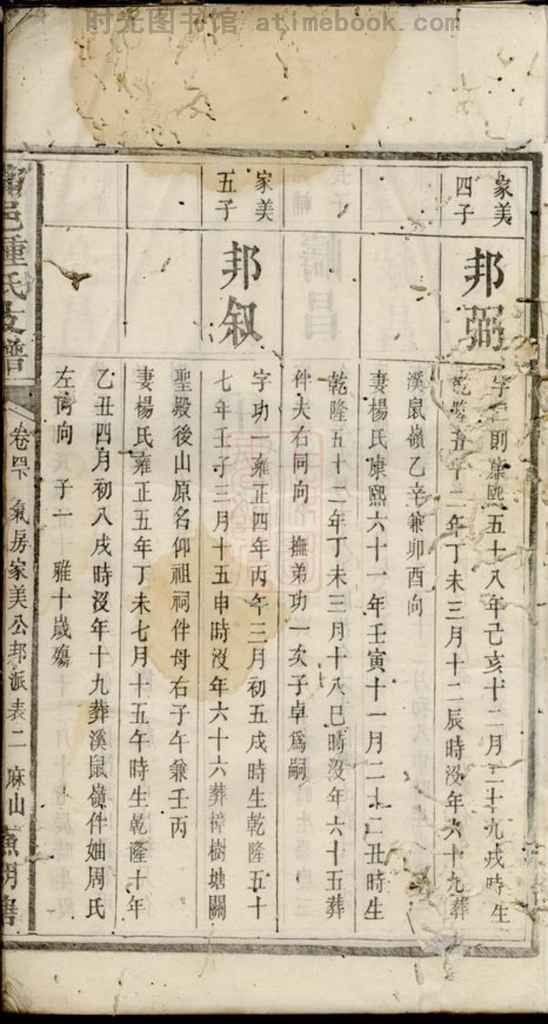 时光图书馆 atimebook.com
家美
四子
邦弼
字 則康熙五十八年己亥十二月二十九戌時生
乾隆五十二年丁未三月十二辰時沒年六十九葬
溪鼠嶺乙辛兼卯酉向
妻楊氏康熙六十一年壬寅十一月二十二丑時生
乾隆五十二年丁未三月十八巳時沒年六十五葬
伴夫右同向 撫弟功一次子卓爲嗣
家美
五子
邦叙
字功一雍正四年丙午三月初五戌時生乾隆五十
七年壬子三月十五申時沒年六十六葬樟樹塘關
聖殿後山原名仰祖祠伴母右子午兼壬丙
妻楊氏雍正五年丁未七月十五午時生乾隆十年
乙丑四月初八戌時沒年十九葬溪鼠嶺伴妯周氏
左同向 子一 雅十歲殤
邑鍾氏支譜
氣房家美公邦派表二 麻山